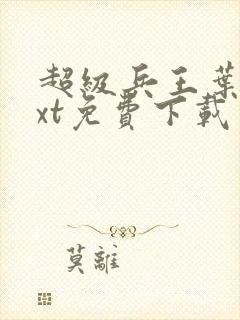 超級兵王葉
xt免費下載
莫離